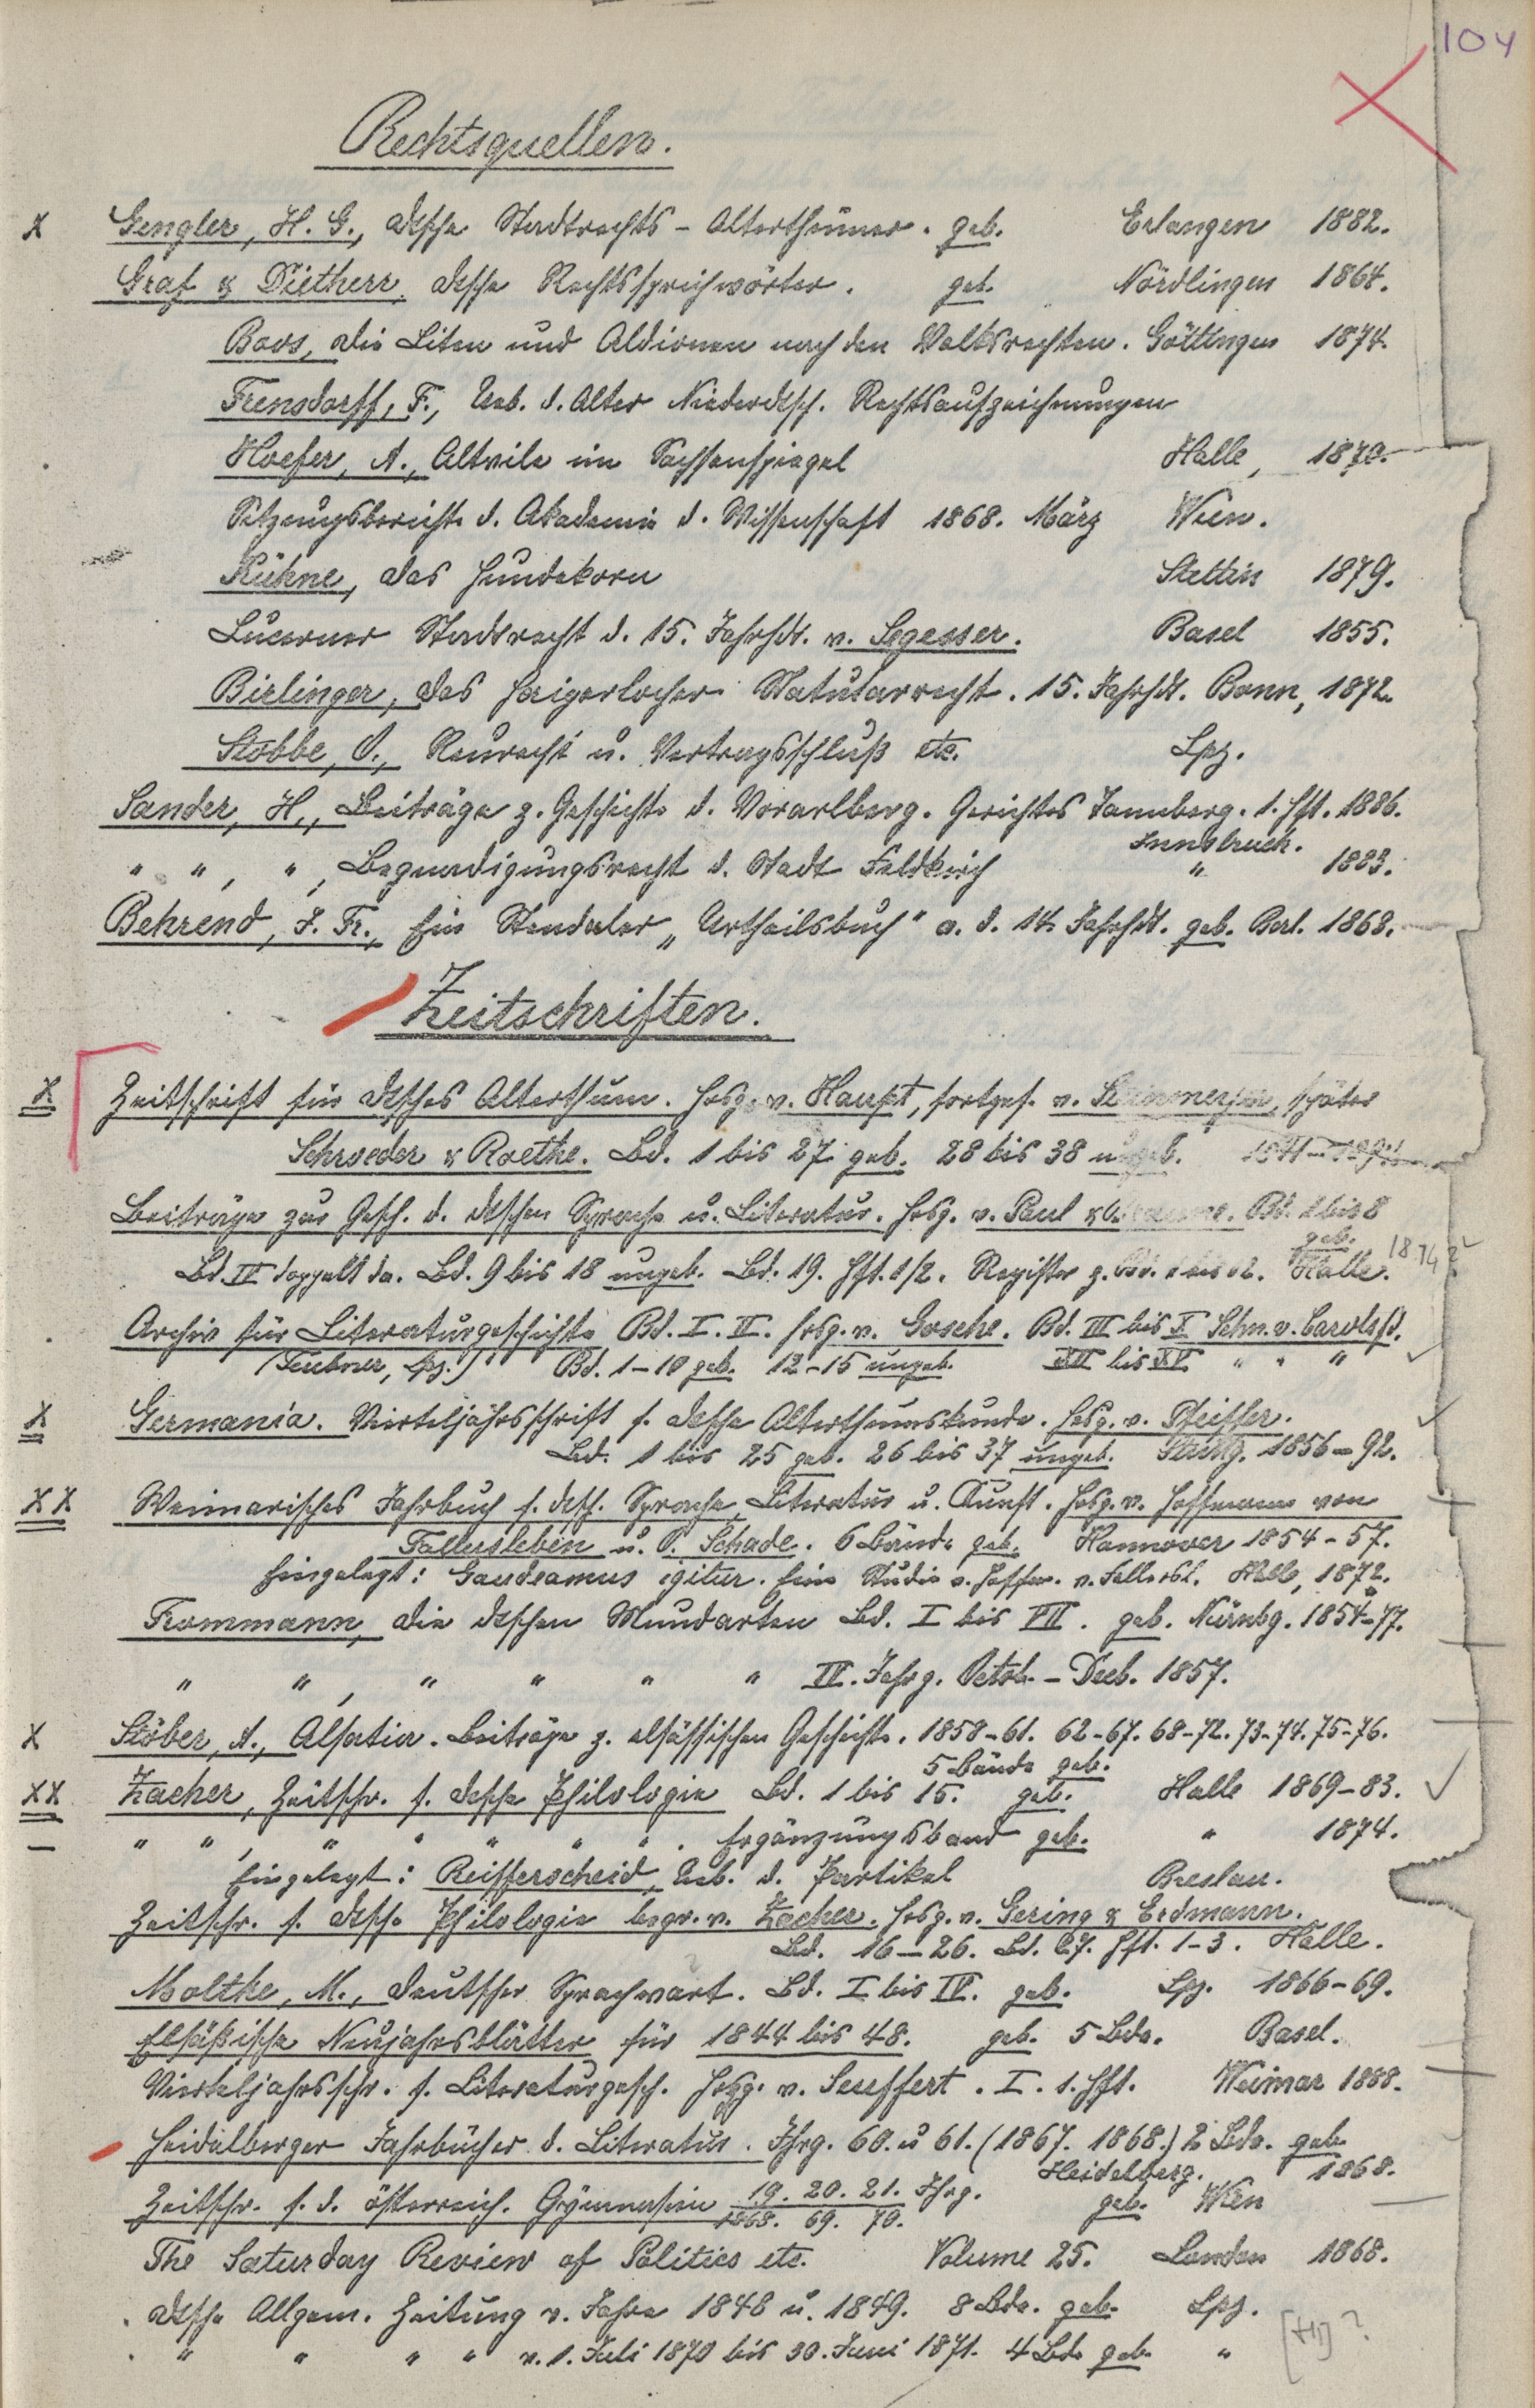 104
Rechtsquellen.
x Gengler, H. G., dtsche Stadtrechts-Alterthümer. geb. Erlangen 1882.
Graf & Dietherr, dtsche Rechtssprichwörter. geb. Nördlingen 1864.
Boos, die Liten und Aldionen nach den Volksrechten. Göttingen 1874.
Frensdorff, F., Ueb. d. Alter Niederdtsch. Rechtsaufzeichnungen
Hoefer, A., Altvile im Sachsenspiegel Halle, 1870.
Sitzungsberichte d. Akademie d. Wissenschaft 1868. März Wien.
Kühne, das Hundekorn Stettin 1879.
Lucerner Stadtrecht d. 15. Jahrhdt. v. Segesser. Basel 1855.
Birlinger, das Haigerlocher Statutarrecht. 15. Jahrhdt. Bonn, 1872.
Stobbe, O., Reurecht u. Vertragsschluß etc. Lpz.
Sander, H., Beiträge z. Geschichte d. Vorarlberg. Gerichtes Tannberg. 1. Hft. 1886.
Innsbruck.
" ", ", Begnadigungsrecht d. Stadt Feldkirch " 1883.
Behrend, J. Fr., Ein Stendaler „Urtheilsbuch" a. d. 14. Jahrhdt. geb. Berl. 1868.
Zeitschriften.
x Zeitschrift für dtsches Alterthum. Hrsg. v. Haupt, fortges. v. Steinmeyer, später
Schroeder & Roethe. Bd. 1 bis 27 geb. 28 bis 38 ungeb.
Beiträge zur Gesch. d. dtschen Sprache u. Literatur. Hrsg. v. Paul & Bd. 1 bis 8
geb.
Bd. IV doppelt da. Bd. 9 bis 18 ungeb. Bd. 19. Hft. 1/2. Register z. Bd. 1 bis 12. Halle. 1874
Archiv für Literaturgeschichte Bd. I. II. hrsg. v. Gosche. Bd. III bis X Schn. v. Carolsfd.
(Teubner, Lpz.) Bd. 1-10 geb. 12-15 ungeb. XII bis XV " " "
x Germania. Vierteljahrsschrift f. dtsche Alterthumskunde. hrsg. v. Pfeiffer.
Bd. 1 bis 25 geb. 26 bis 37 ungeb. Stuttg. 1856-92.
xx Weimarisches Jahrbuch f. dtsch. Sprache, Literatur u. Kunst. Hrsg. v. Hoffmann von
Fallersleben u. O. Schade. 6 Bände geb. Hannover 1854-57.
Eingelegt: Gaudeamus igitur. Eine Studie v. Hoffm. v. Fallersl. Halle, 1872.
Frommann, die dtschen Mundarten Bd. I bis VII. geb. Nürnbg. 1854-77.
" ", " " " " IV. Jahrg. Octob.-Decb. 1857.
x Stöber, A., Alsatia. Beiträge z. elsässischen Geschichte. 1858-61. 62-67. 68-72. 73-74. 75-76.
5 Bände geb.
xx Zacher, Zeitschr. f. dtsche Philologie Bd. 1 bis 15. geb. Halle 1869-83.
– " ", " " " " ". Ergänzungsband geb. " 1874.
Eingelegt: Reifferscheid, Ueb. d. Partikel Breslau.
Zeitschr. f. dtsche Philologie begr. v. Zacher. hrsg. v. Gering & Erdmann.
Bd. 16-26. Bd. 27. Hft. 1-3. Halle.
Moltke, M., Deutscher Sprachwart. Bd. I bis IV. geb. Lpz. 1866-69.
Elsäßische Neujahrsblätter für 1844 bis 48. geb. 5 Bde. Basel.
Vierteljahrsschr. f. Literaturgesch. hrsg. v. Seuffert. I. 1. Hft. Weimar 1888.
Heidelberger Jahrbücher d. Literatur. Jhrg. 60. u 61. (1867. 1868.) 2 Bde. geb.
Heidelberg. 1868.
Zeitschr. f. d. österreich. Gymnasien 19. 20. 21. Jhrg. geb. Wien
1868. 69. 70.
The Saturday Review of Politics etc. Volume 25. London 1868.
dtsche Allgem. Zeitung v. Jahre 1848 u. 1849. 8 Bde. geb. Lpz.
" " " " v. 1. Juli 1870 bis 30. Juni 1871. 4 Bde geb. "